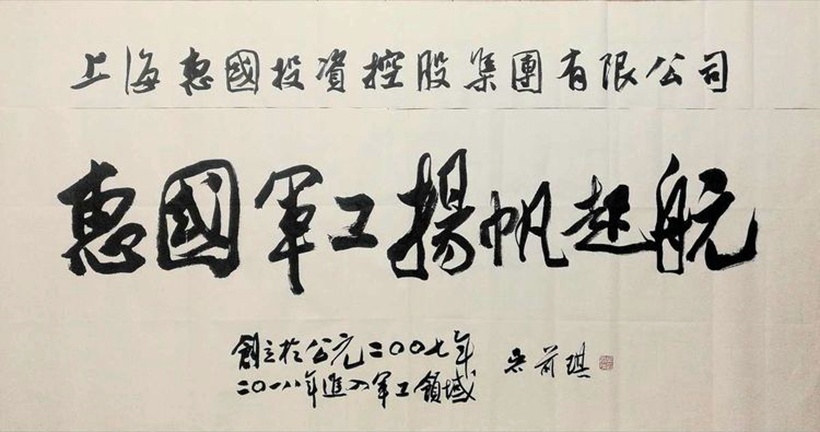 上海惠國投資控股集團有限公司
惠國軍工揚帆起航
創立於公元二〇〇七年
二〇一八年進入軍工領域
吳前琪